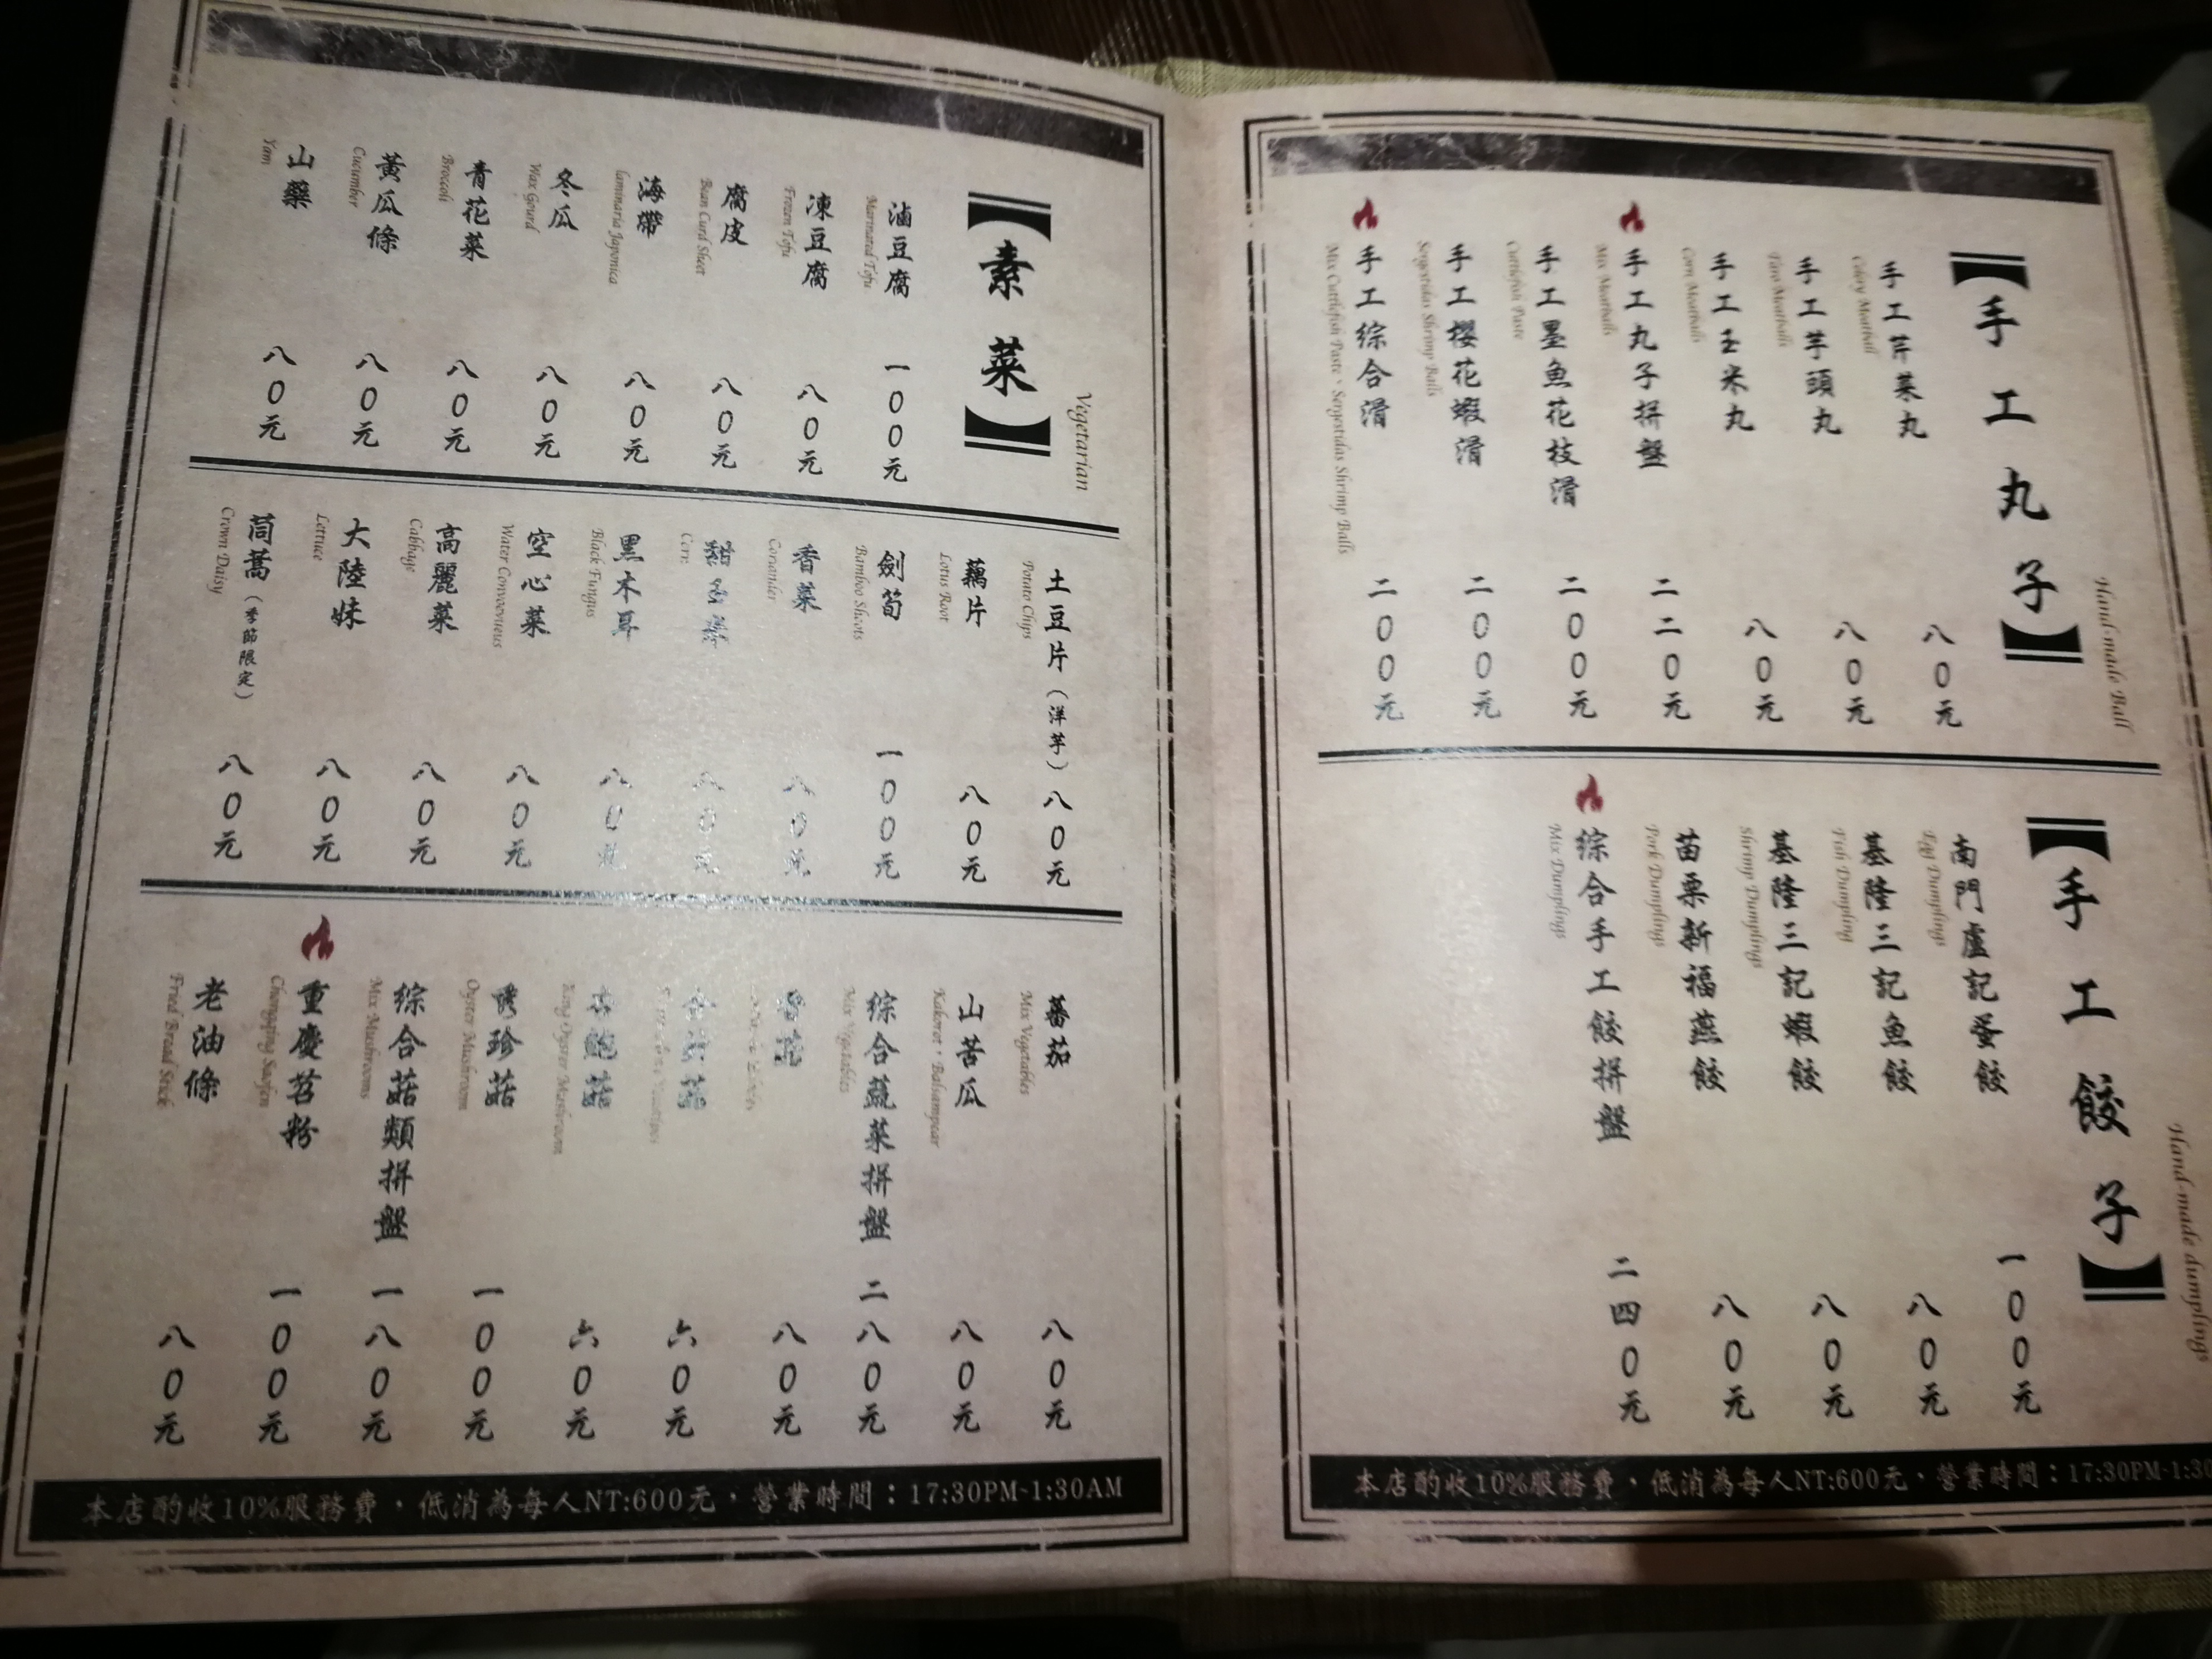 Hand-made Ball
【手工丸子】
手工芹菜丸 八0元
Celery Meatball
手工芋頭丸 八0元
Taro Meatballs
手工玉米丸 八0元
Corn Meatballs
手工丸子拼盤 二二0元
Mix Meatballs
手工墨魚花枝滑 二00元
Cuttlefish Paste
手工櫻花蝦滑 二00元
Sergestidas Shrimp Balls
手工綜合滑 二00元
Mix Cuttlefish Paste、Sergestidas Shrimp Balls
Hand-made dumplings
【手工餃子】
南門盧記蛋餃 一00元
Egg Dumplings
基隆三記魚餃 八0元
Fish Dumpling
基隆三記蝦餃 八0元
Shrimp Dumplings
苗栗新福燕餃 八0元
Pork Dumplings
綜合手工餃拼盤 二四0元
Mix Dumplings
本店酌收10%服務費，低消為每人NT:600元，營業時間：17:30PM-1:30
Vegetarian
【素菜】
滷豆腐 一00元
Marinated Tofu
凍豆腐 八0元
Frozen Tofu
腐皮 八0元
Bean Curd Sheet
海帶 八0元
laminaria Japonica
冬瓜 八0元
Wax Gourd
青花菜 八0元
Broccoli
黃瓜條 八0元
Cucumber
山藥 八0元
Yam
土豆片（洋芋）八0元
Potato Chips
藕片 八0元
Lotus Root
劍筍 一00元
Bamboo Shoots
香菜 八0元
Coriander
甜玉米 八0元
Corn
黑木耳 八0元
Black Fungus
空心菜 八0元
Water Convovvieus
高麗菜 八0元
Cabbage
大陸妹 八0元
Lettuce
茼蒿（季節限定）八0元
Crown Daisy
蕃茄 八0元
Mix Vegetables
山苦瓜 八0元
Kakorot、Balsampear
綜合蔬菜拼盤 二八0元
Mix Vegetables
香菇 八0元
金針菇 六0元
杏鮑菇 六0元
King Oyster Mushroom
秀珍菇 一00元
Oyster Mushroom
綜合菇類拼盤 一八0元
Mix Mushrooms
重慶苕粉 一00元
Chongqing Saofen
老油條 八0元
Fried Bread Stick
本店酌收10%服務費，低消為每人NT:600元，營業時間：17:30PM-1:30AM